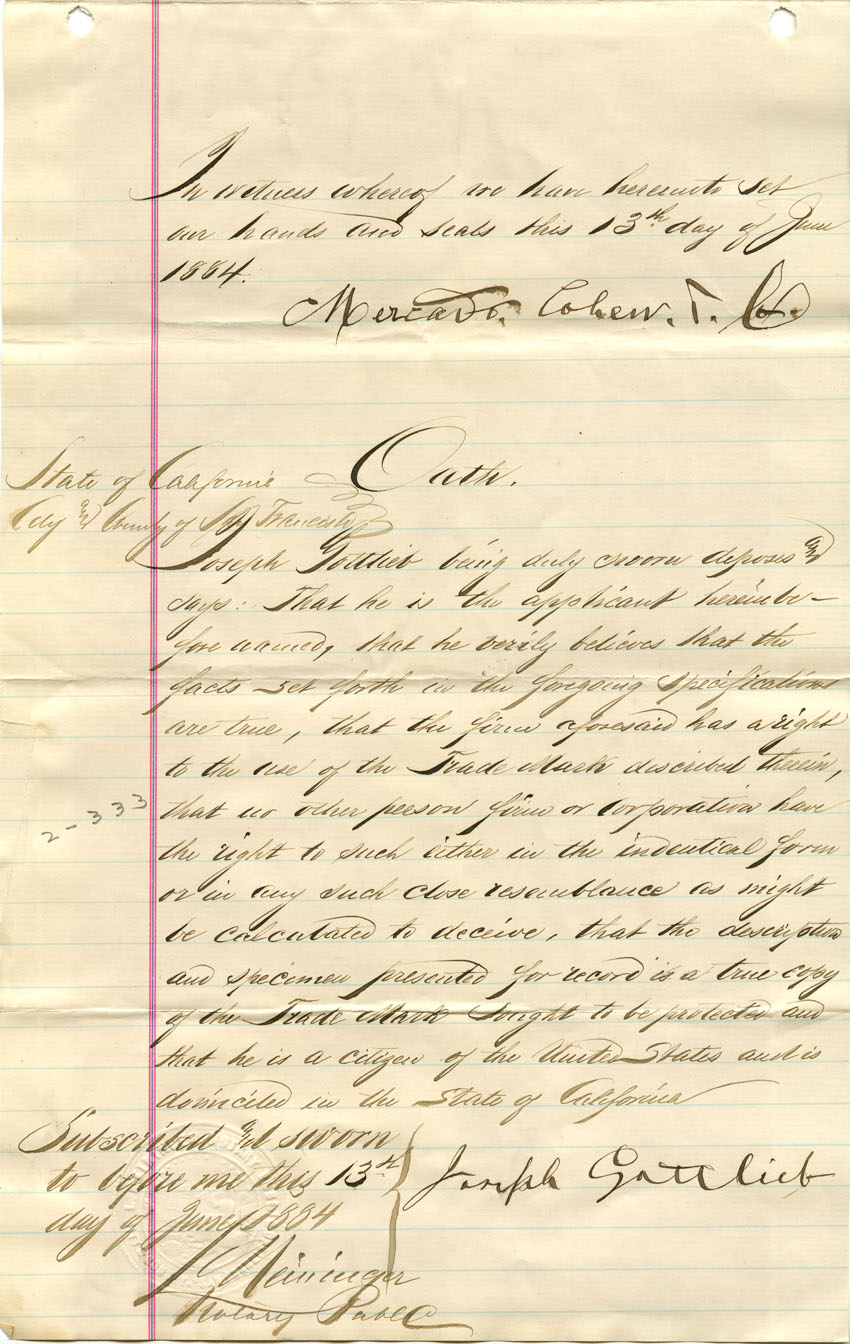 In witness whereof we have hereunto set
our hands and seals this 13th day of June
1884.
Mercado. Cohen. & Co.
Oath.
State of California
City and County of San Francisco
Joseph Gottlieb being duly sworn deposes and
says: That he is the applicant hereinbe-
fore named, that he verily believes that the
facts set forth in the foregoing specification
are true, that the firm aforesaid has a right
to the use of the Trade Mark described therein,
that no other person firm or corporation have
the right to such either in the indentical form
or in any such close resemblance as might
be calculated to deceive, that the description
and specimen presented for record is a true copy
of the Trade Mark sought to be protected and
that he is a citizen of the United States and is
domiciled in the State of California
2-333
Subscribed and sworn
to before me this 13th
day of June 1884
Joseph Gottlieb
Meininger
Notary Public